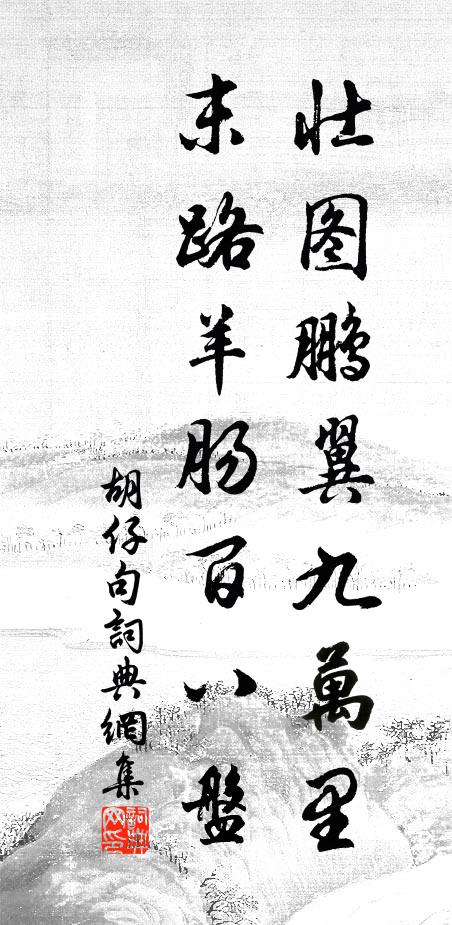 壮图鹏翼九萬里
末路羊肠百八盤
胡仔句詞典網集